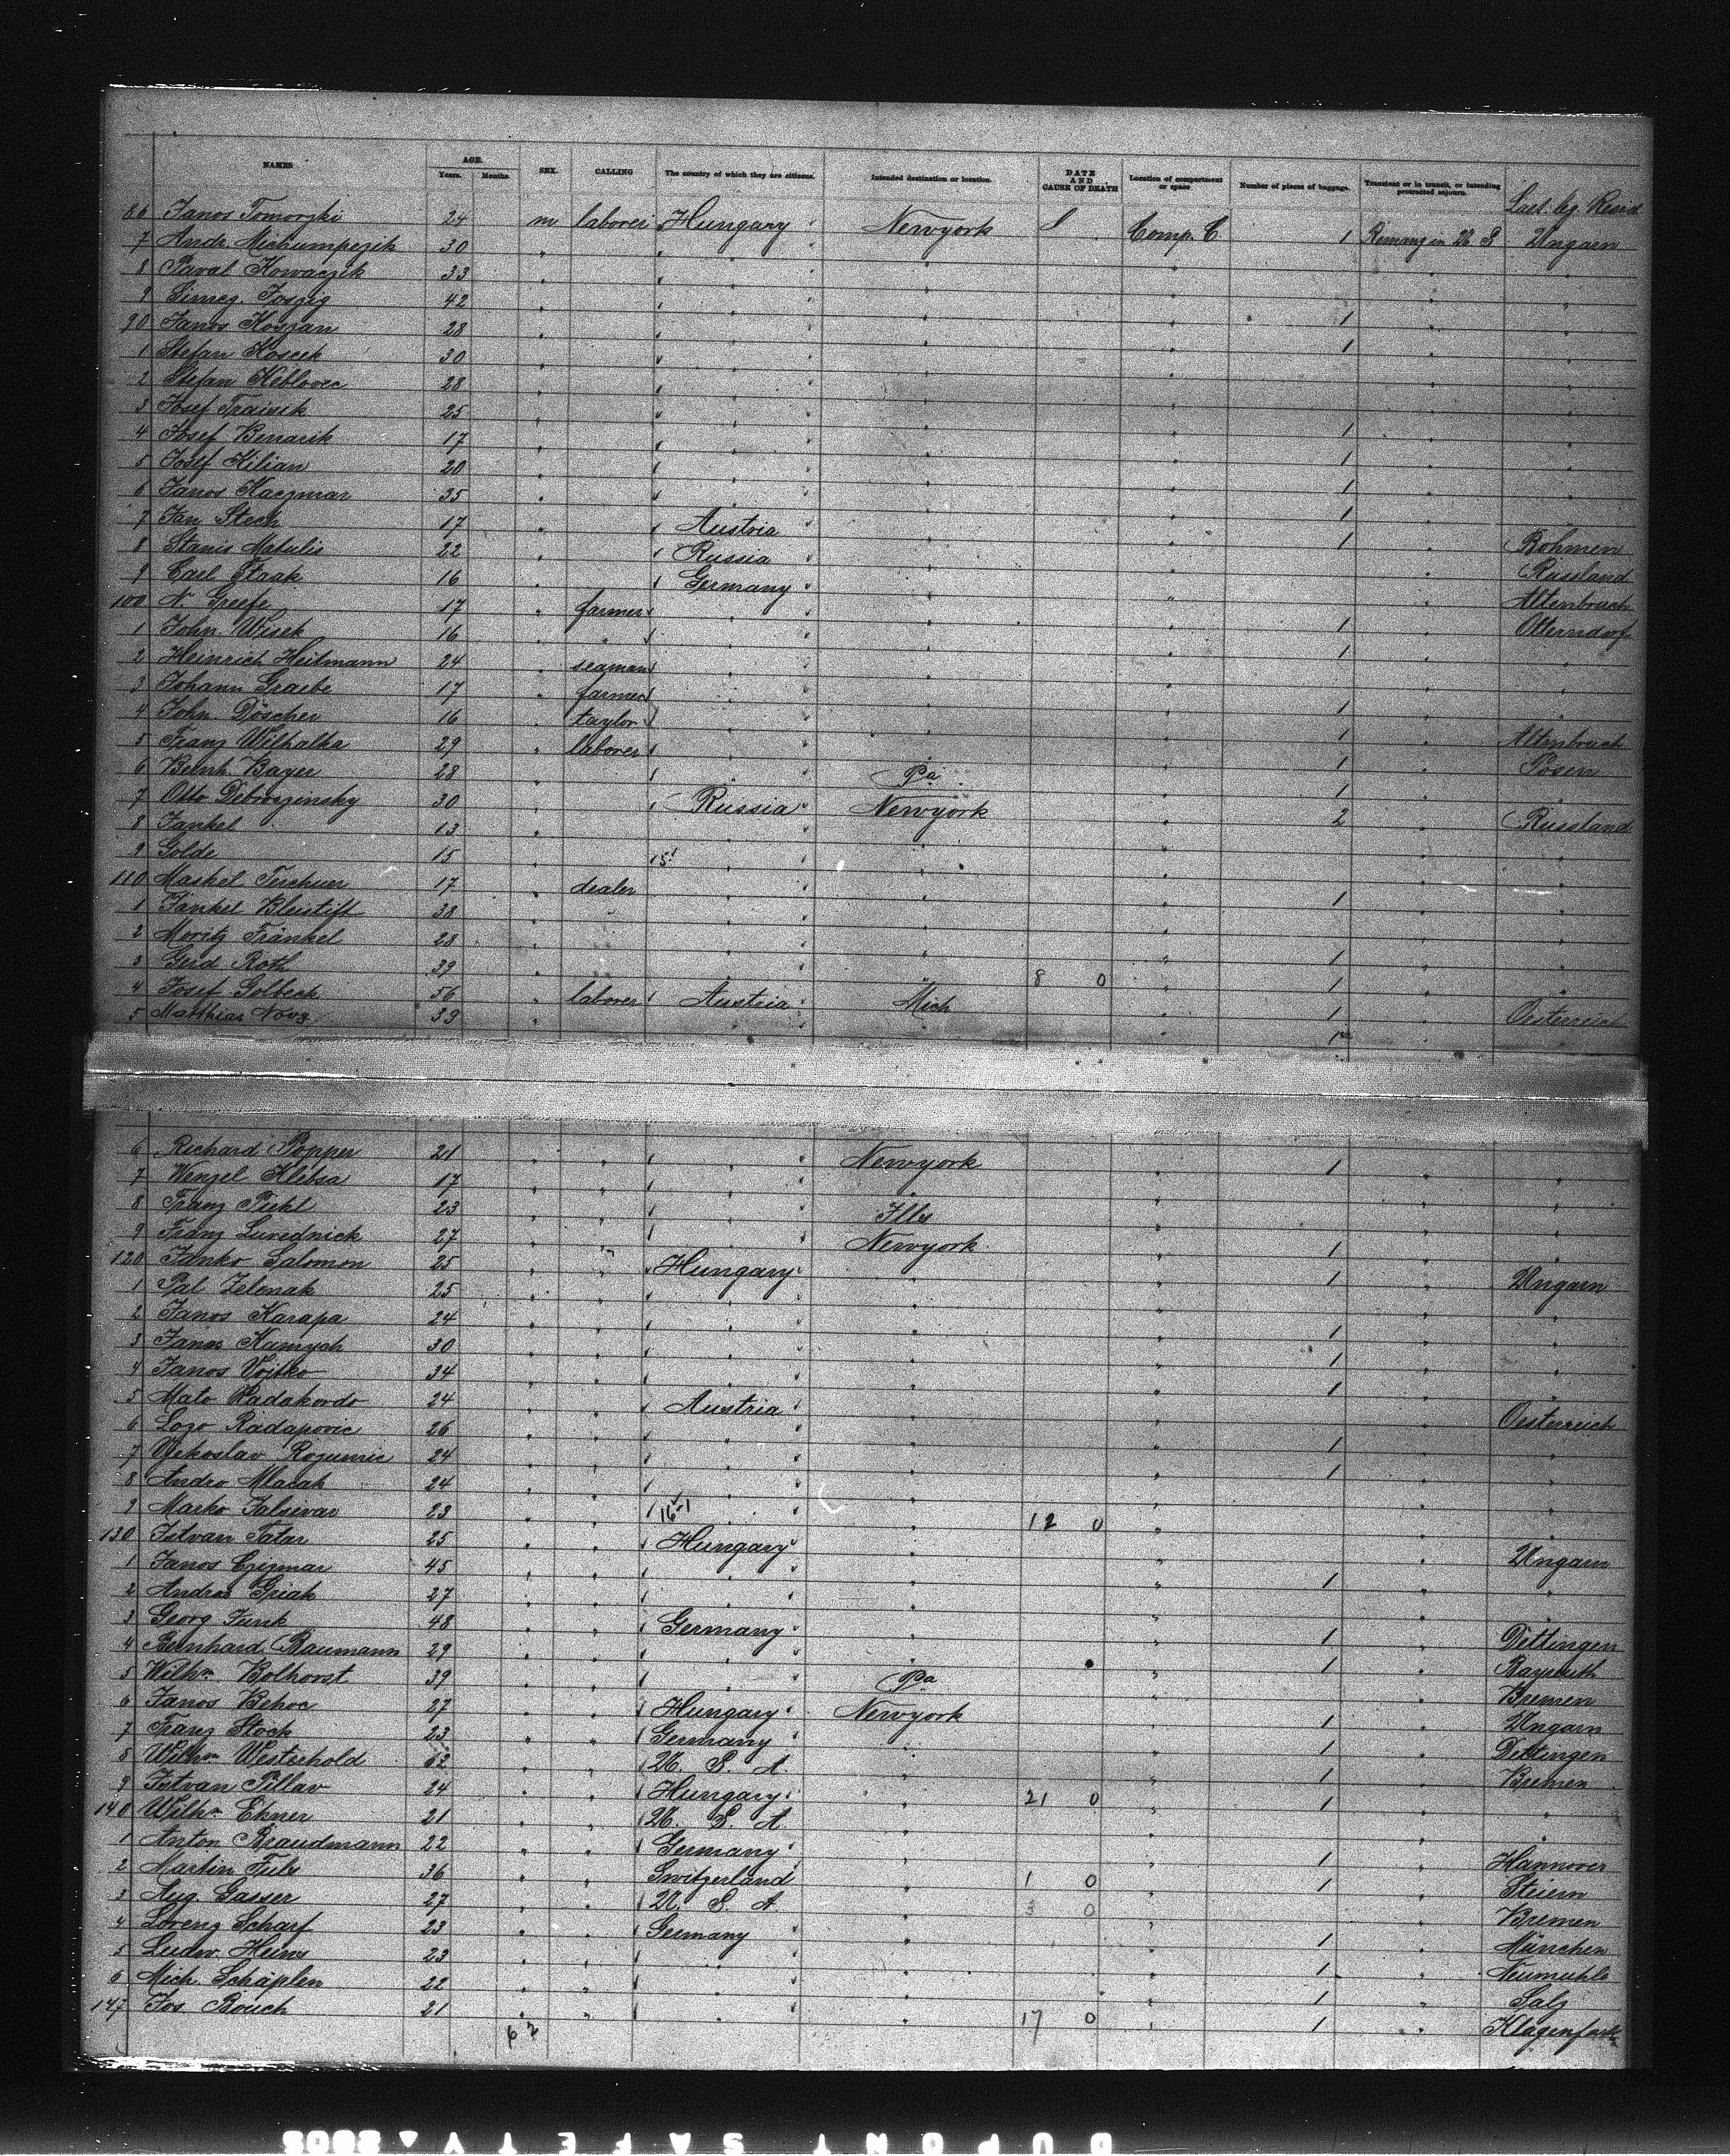 NAMES AGE. Years. Months. SEX. CALLING The country of which they are citizens. Intended destination or location. DATE AND CAUSE OF DEATH Location of compartment or space Number of pieces of baggage. Transient or in transit, or intending protracted sojourn. Last. leg. Resid.
86 Janos Tomorski 24 m laborer Hungary Newyork Comp. C 1 Remang in U S Ungarn
7 Andr. 30
8 Paval Kowaczik 33
9 42 1
90 Janos Koszan 28 1
1 Stefan Koscek 30
2 Stefan Keblovec 28
3 Josef 25 1
4 Josef Benarik 17 1
5 Josef Kilian 20 1
6 Janos Kaczmar 35 1
7 Jan Stech 17 Austria 1 Bohmen
8 Stanis Matulis 22 Russia Russland
9 Carl Staak 16 Germany Altenbruch
100 N. Greefe 17 farmer 1 Otterndorf
1 John. Wisek 16 " 1
2 Heinrich Heitmann 24 seaman
3 Johann Graebe 17 farmer 1
4 John. Döscher 16 taylor 1 Altenbruch
5 Franz Wilhalka 29 laborer 1 Posen
6 Bernh. Bayer 28 Pa 1
7 Otto Debroszinsky 30 Russia Newyork 2 Russland
8 Jankel 13
9 Golde 15 15
110 Maskel 17 dealer 1
1 Jankel Bleistift 38
2 Moritz Fränkel 28 1
3 Gerd Roth 39 8 0 1
4 Josef Golbeck 56 laborer Austria Mich 1 Oesterreich
5 Matthias Novy 39 1
6 Richard Popper 21 Newyork 1
7 Wenzel Klebsa 17
8 Franz Piehl 23 Ills
9 Franz Lurednick 27 Newyork 1
120 Janko Salomon 25 Hungary 1 Ungarn
1 Pal Zelenak 25
2 Janos Karapa 24 1
3 Janos Kamych 30 1
4 Janos Vojtko 34 1
5 Mato 24 Austria Oesterreich
6 Lozo Radapovic 26 1
7 Vjekoslav Rozumic 24 1
8 Andro Mlacak 24
9 Marko 23 16-1 12 0
130 Istvan Tatar 25 Hungary Ungarn
1 Janos Czizmar 45 1
2 Andras 27
3 Georg Funk 48 Germany 1 Dettingen
4 Bernhard Baumann 29 1 Bayreuth
5 Wilhm. Bolhorst 39 Pa Bremen
6 Janos Behoc 27 Hungary Newyork 1 Ungarn
7 Franz Stock 23 Germany 1 Dettingen
8 Wilhm Westerhold 62 U. S. A. 1 Bremen
9 Istvan Pillar 24 Hungary 21 0 1
140 Wilhm Ebner 21 U. S. A.
1 Anton Braudmann 22 Germany 1 Hannover
2 Martin 36 Switzerland 1 0 1 Steiern
3 Aug. Gasser 27 U. S. A. 3 0 Bremen
4 Lorenz Scharf 23 Germany 1 München
5 Ludw. Heins 23 1 Neumuhle
6 Mich. Schäplen 22 1 Salz
147 Jos. Bouch 21 17 0 1 Klagenfurt
62
DUPONT SAFETY